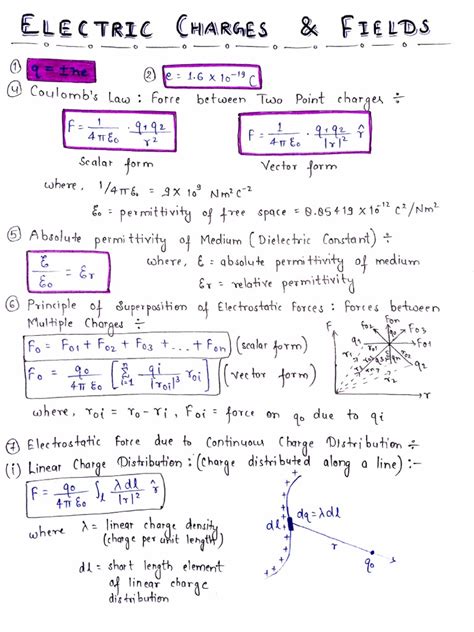 ELECTRIC CHARGES & FIELDS
① q = ±ne ② e = 1.6 × 10⁻¹⁹ C
④ Coulomb's Law : Force between Two Point charges ÷
F = 1/4πε₀ · q₁q₂/r² F = 1/4πε₀ · q₁q₂/|r|² r̂
Scalar form Vector form
where, 1/4πε₀ = 9×10⁹ Nm²C⁻²
ε₀ = permittivity of free space = 8.85419 × 10⁻¹² C²/Nm²
⑤ Absolute permittivity of Medium (Dielectric Constant) ÷
ε/ε₀ = εr where, ε = absolute permittivity of medium
εr = relative permittivity
⑥ Principle of Superposition of Electrostatic Forces : Forces between
Multiple Charges ÷
F₀ = F₀₁ + F₀₂ + F₀₃ + ... + F₀n (scalar form)
F₀ = q₀/4πε₀ [ⁿΣᵢ₌₁ qi/|r₀i|³ r₀i] (vector form)
F F₀n F₀₃ F₀₁ q₁ q₂ r₁ r₂ r
where, r₀i = r₀ - ri , F₀i = force on q₀ due to qi
⑦ Electrostatic Force due to Continuous Charge Distribution ÷
(i) Linear Charge Distribution : (Charge distributed along a line) :-
F = q₀/4πε₀ ∫l λdl/|r|² r̂
where λ = linear charge density
(charge per unit length)
dl = short length element
of linear charge
distribution
dl dq = λdl
r
q₀